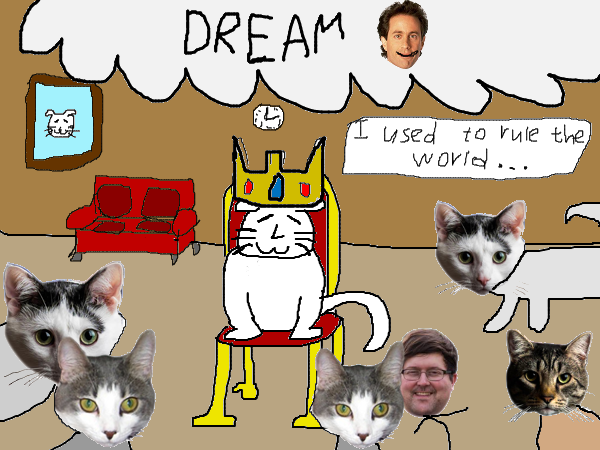 DREAM
I used to rule the
world...